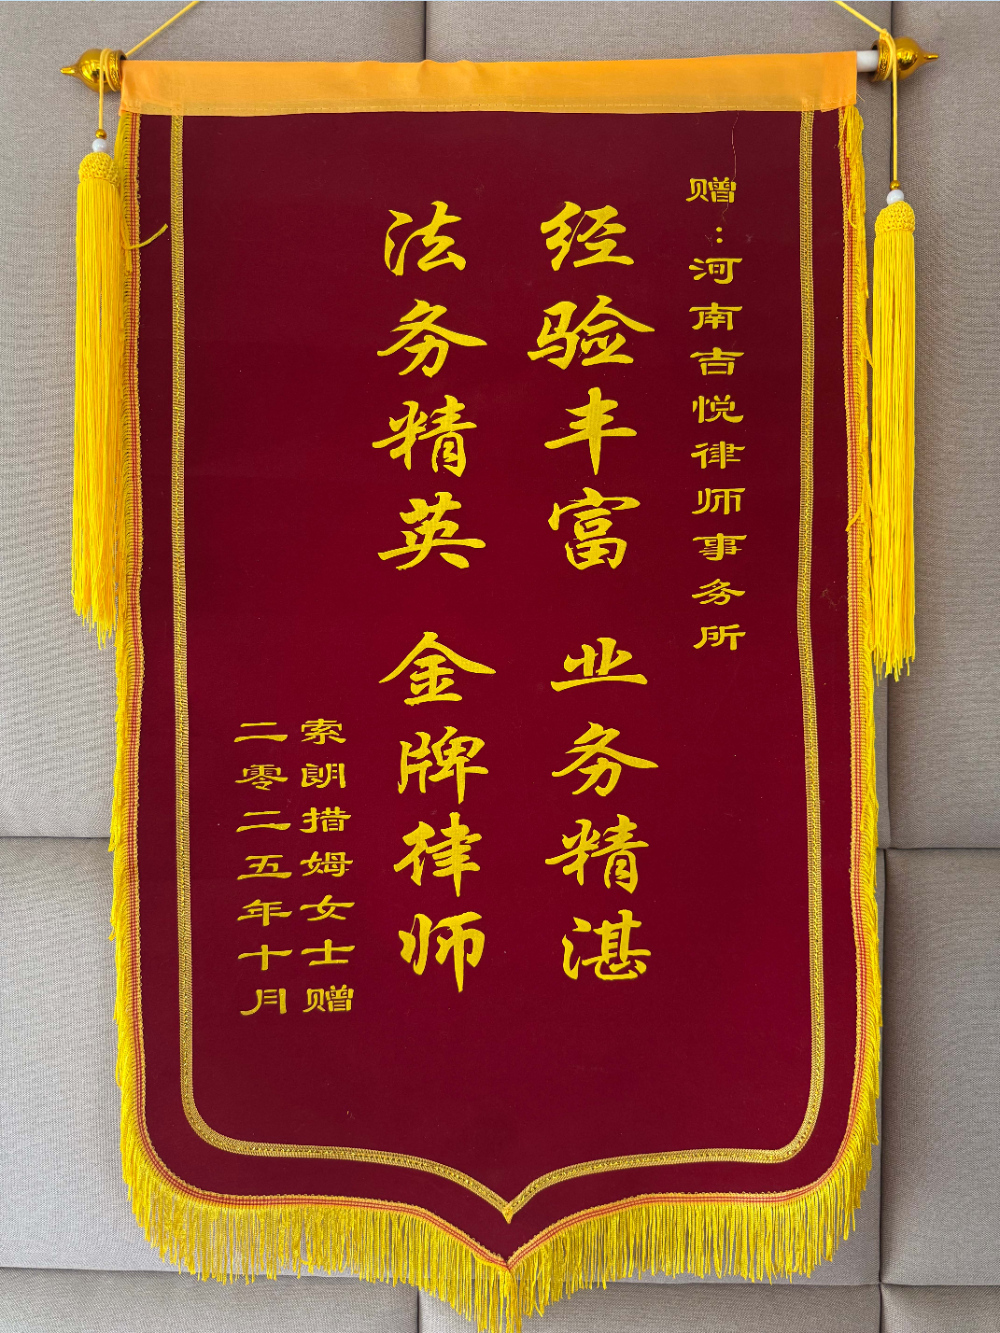 赠：河南吉悦律师事务所
经验丰富 业务精湛
法务精英 金牌律师
索朗措姆女士赠
二零二五年十月